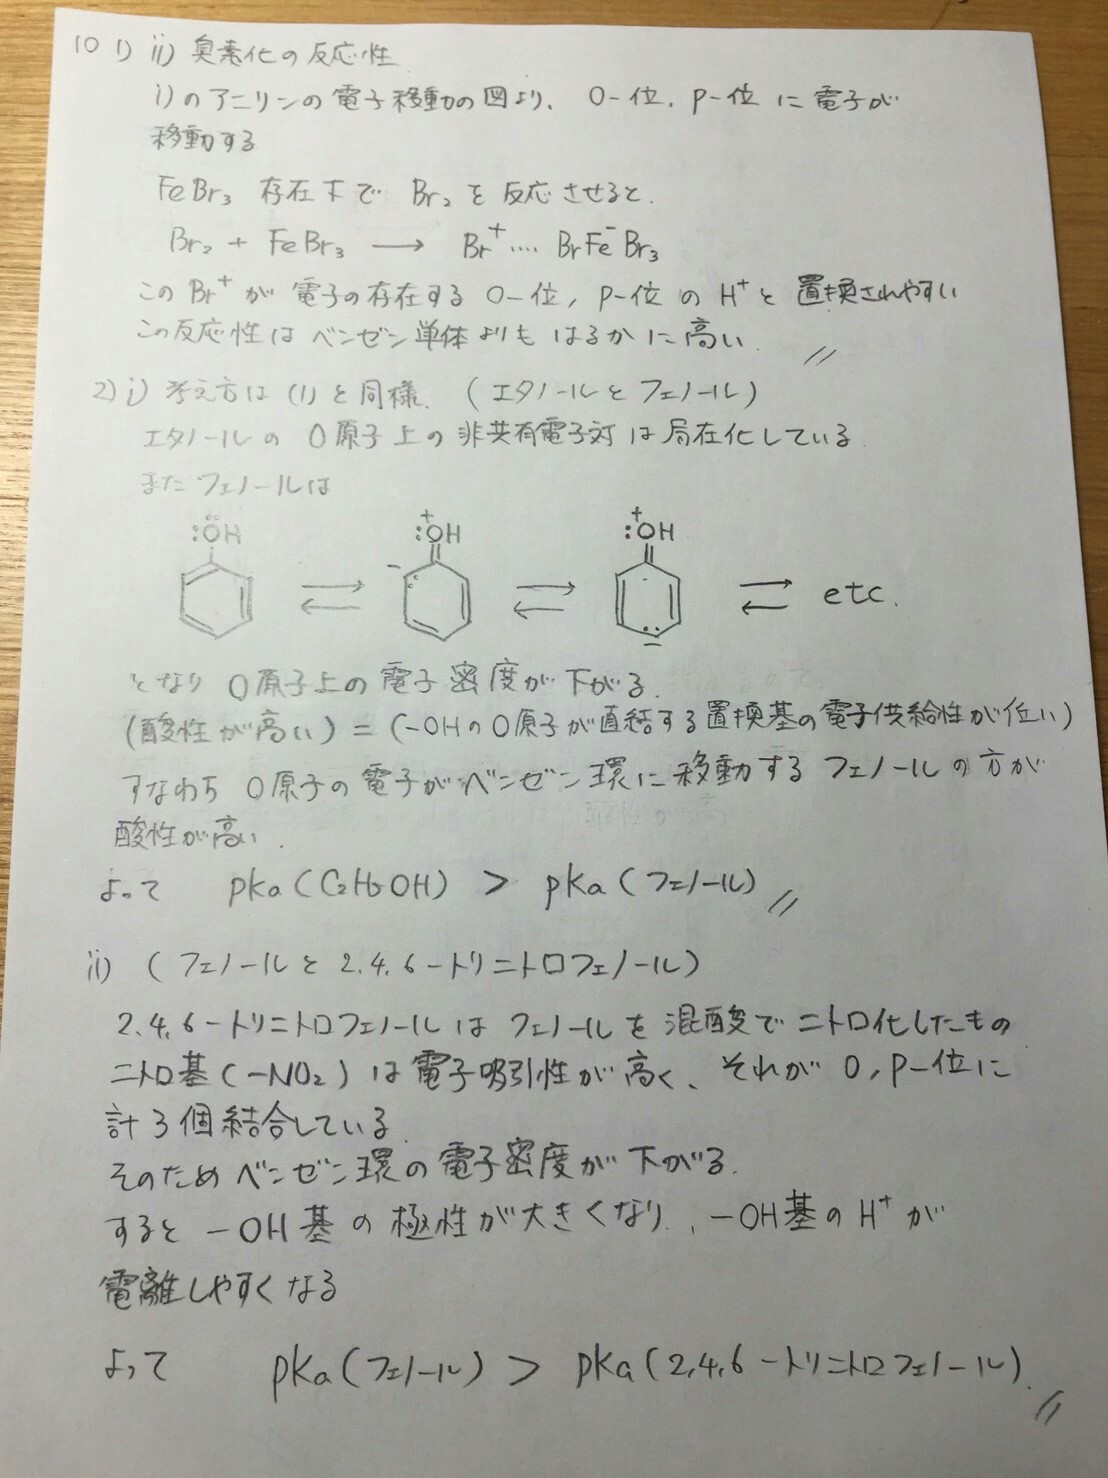 10 1) ii) 臭素化の反応性
i)のアニリンの電子移動の図より、 o-位, p-位に電子が
移動する
FeBr₃ 存在下で Br₂を反応させると,
Br₂ + FeBr₃ → Br⁺‥‥ BrFe⁻Br₃
このBr⁺が電子の存在するo-位, p-位のH⁺と置換されやすい
この反応性はベンゼン単体よりもはるかに高い. //
2) i) 考え方は(1)と同様. (エタノールとフェノール)
エタノールのO原子上の非共有電子対は局在化している.
またフェノールは
:ÖH ⇄ :OH⁺ ⇄ :OH⁺ ⇄ etc.
となりO原子上の電子密度が下がる.
(酸性が高い) = (-OHのO原子が直結する置換基の電子供給性が低い)
すなわちO原子の電子がベンゼン環に移動するフェノールの方が
酸性が高い.
よって pKa (C₂H₅OH) > pKa (フェノール) //
ii) (フェノールと2.4.6-トリニトロフェノール)
2.4.6-トリニトロフェノールはフェノールを混酸でニトロ化したもの
ニトロ基(-NO₂)は電子吸引性が高く、それがo, p-位に
計3個結合している.
そのためベンゼン環の電子密度が下がる.
すると-OH基の極性が大きくなり、-OH基のH⁺が
電離しやすくなる
よって pKa (フェノール) > pKa (2,4,6-トリニトロフェノール). //